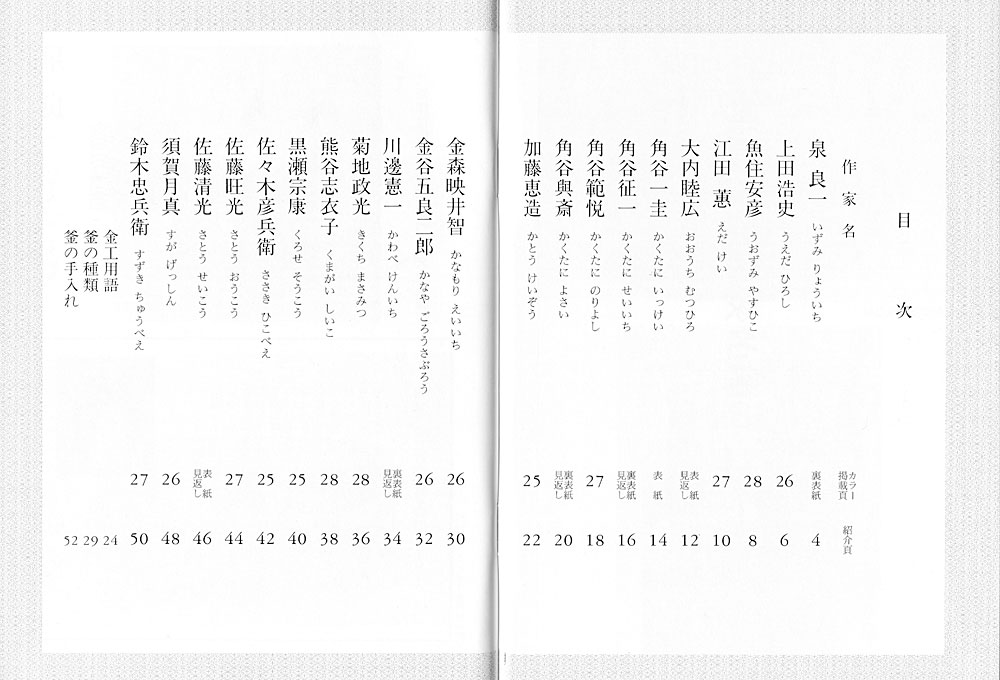 目次
作家名 カラー掲載頁 紹介頁
泉 良一 いずみ りょういち 裏表紙 4
上田浩史 うえだ ひろし 26 6
魚住安彦 うおずみ やすひこ 28 8
江田 蕙 えだ けい 27 10
大内睦広 おおうち むつひろ 表紙見返し 12
角谷一圭 かくたに いっけい 表紙 14
角谷征一 かくたに せいいち 裏表紙見返し 16
角谷範悦 かくたに のりよし 27 18
角谷與斎 かくたに よさい 裏表紙見返し 20
加藤恵造 かとう けいぞう 25 22
金森映井智 かなもり えいいち 26 30
金谷五良二郎 かなや ごろうさぶろう 26 32
川邊憲一 かわべ けんいち 裏表紙見返し 34
菊地政光 きくち まさみつ 28 36
熊谷志衣子 くまがい しいこ 28 38
黒瀬宗康 くろせ そうこう 25 40
佐々木彦兵衛 ささき ひこべえ 25 42
佐藤旺光 さとう おうこう 27 44
佐藤清光 さとう せいこう 表紙見返し 46
須賀月真 すが げっしん 26 48
鈴木忠兵衛 すずき ちゅうべえ 27 50
金工用語 24
釜の種類 29
釜の手入れ 52